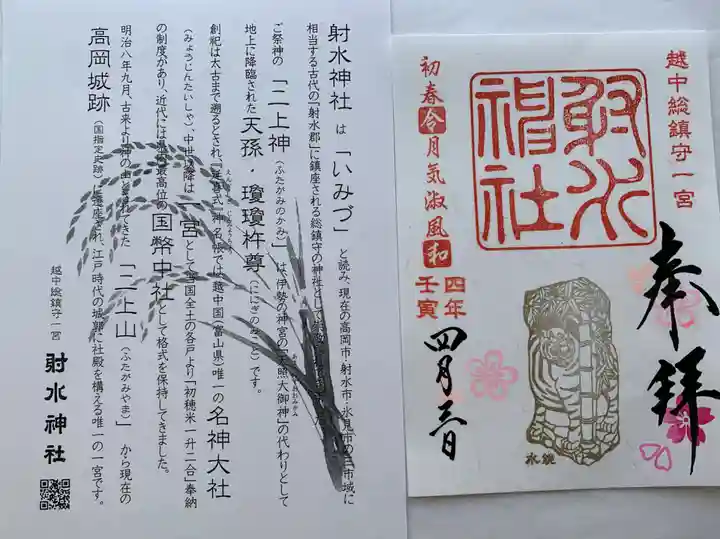 射水神社 は 「いみづ」 と読み、現在の高岡市・射水市・氷見市の三市域に
相当する古代の「射水郡」に鎮座される総鎮守の神社として
ご祭神の「二上神（ふたがみのかみ）」は、伊勢の神宮の「天照大御神」の代わりとして
地上に降臨された天孫・瓊瓊杵尊（ににぎのみこと）です。
創祀は太古まで遡るとされ、『延喜式』神名帳では、越中国（富山県）唯一の名神大社
（みょうじんたいしゃ）、中世以降は一宮として当国全土の各戸より「初穂米一升二合」奉納
の制度があり、近代には県内最高位の国幣中社として格式を保持してきました。
明治八年九月、古来より神の山とされてきた「二上山（ふたがみやま）」から現在の
高岡城跡（国指定史跡）に遷座され、江戸時代の城郭に社殿を構える唯一の一宮です。
越中総鎮守一宮 射水神社
越中総鎮守一宮
奉拝
射水
神社
初春令月気淑風和
四年
壬寅
四月三日
水鏡